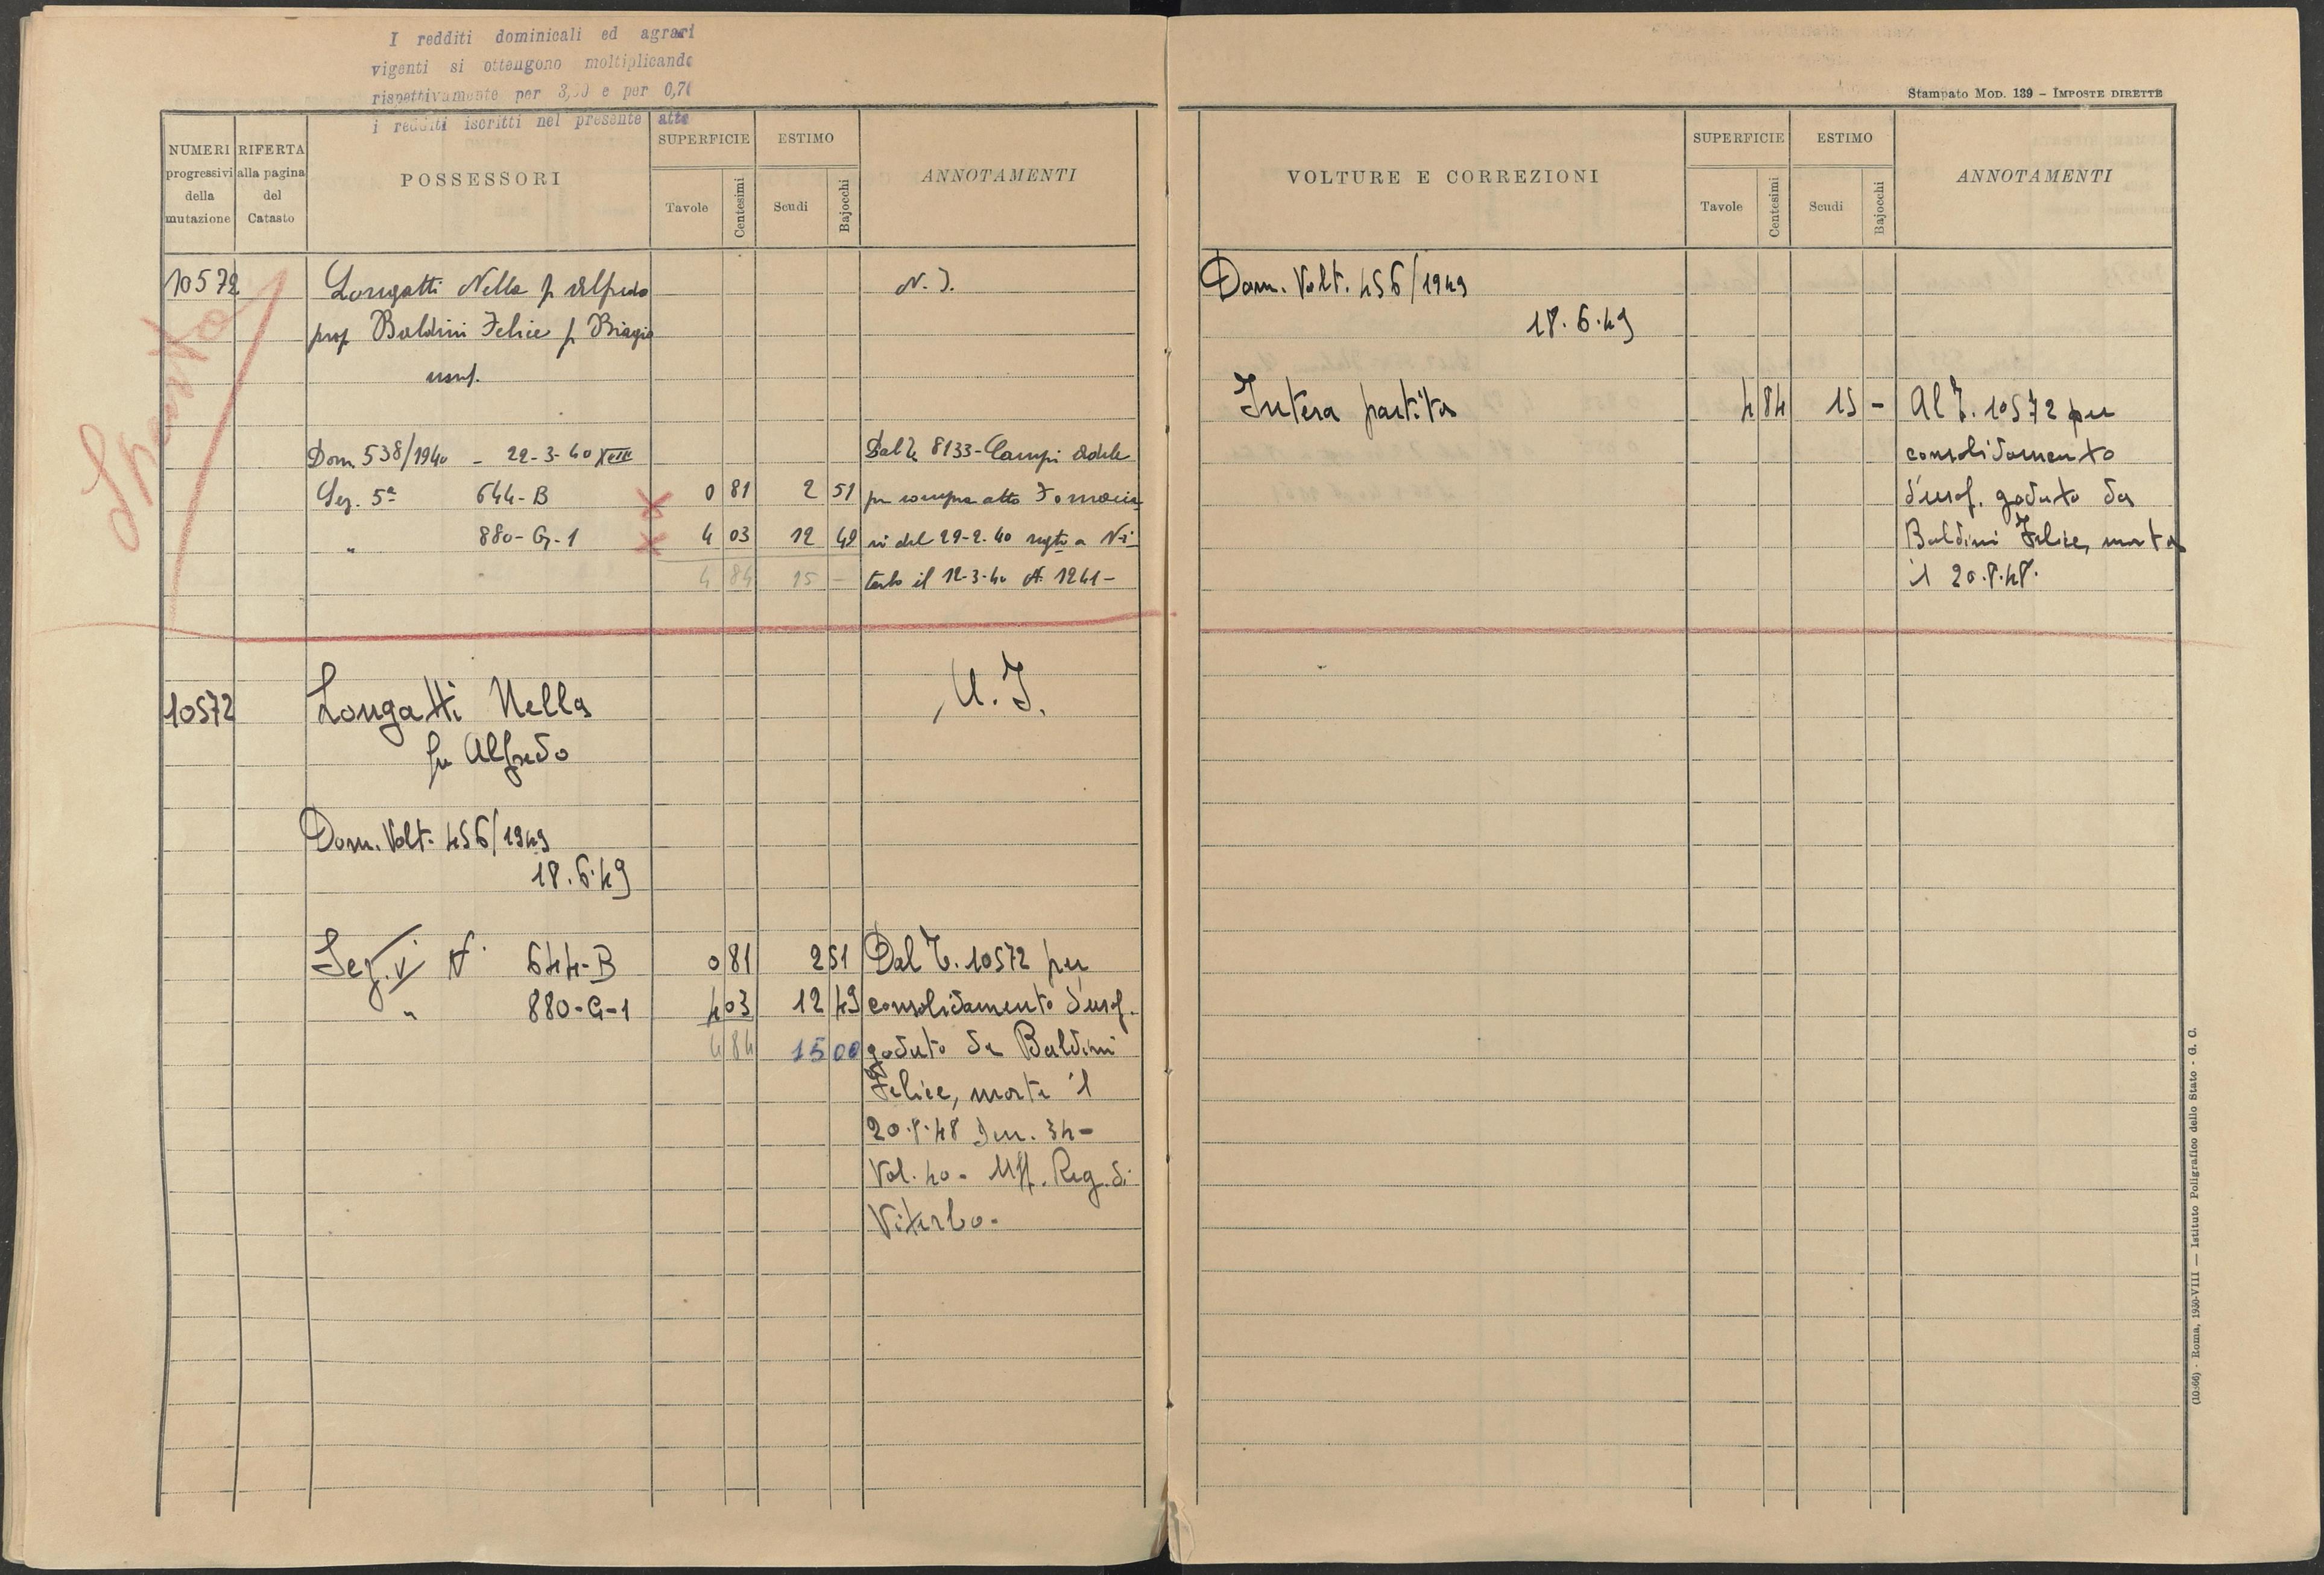 I redditi dominicali ed agrari
vigenti si ottengono moltiplicando
rispettivamente per 3,50 e per 0,70
i redditi iscritti nel presente atto
Stampato Mod. 139 – Imposte dirette
NUMERI progressivi della mutazione
RIFERTA alla pagina del Catasto
POSSESSORI
SUPERFICIE
Tavole
Centesimi
ESTIMO
Scudi
Bajocchi
ANNOTAMENTI
VOLTURE E CORREZIONI
SUPERFICIE
Tavole
Centesimi
ESTIMO
Scudi
Bajocchi
ANNOTAMENTI
10572 Longatti Nella f. Alfredo N. I.
prop Baldini Felice f. Biagio
usuf.
Dom 538/1940 - 22-3-40 XVIII Dal T. 8133 - Campi Adele
Sez. 5ª 644-B 0 81 2 51 per compra atto
" 880-G-1 4 03 12 49 del 29-2-40 regto a Vi-
4 84 15 - terbo il 12-3-40 N. 1241-
10572 Longatti Nella U. I.
fu Alfredo
Dom. Volt. 456/1949
18.6.49
Sez. V N. 644-B 0 81 2 51 Dal T. 10572 per
" 880-G-1 4 03 12 49 consolidamento d'usuf.
4 84 15 00 goduto da Baldini
Felice, morta il
20.8.48 Den. 34-
Vol. 40 - Uff. Reg. di
Viterbo.
Dom. Volt. 456/1949
18.6.49
Intera partita 4 84 15 - Al T. 10572 per
consolidamento
d'usuf. goduto da
Baldini Felice, morta
il 20.8.48.
(10:66) - Roma, 1930-VIII — Istituto Poligrafico dello Stato - G. C.